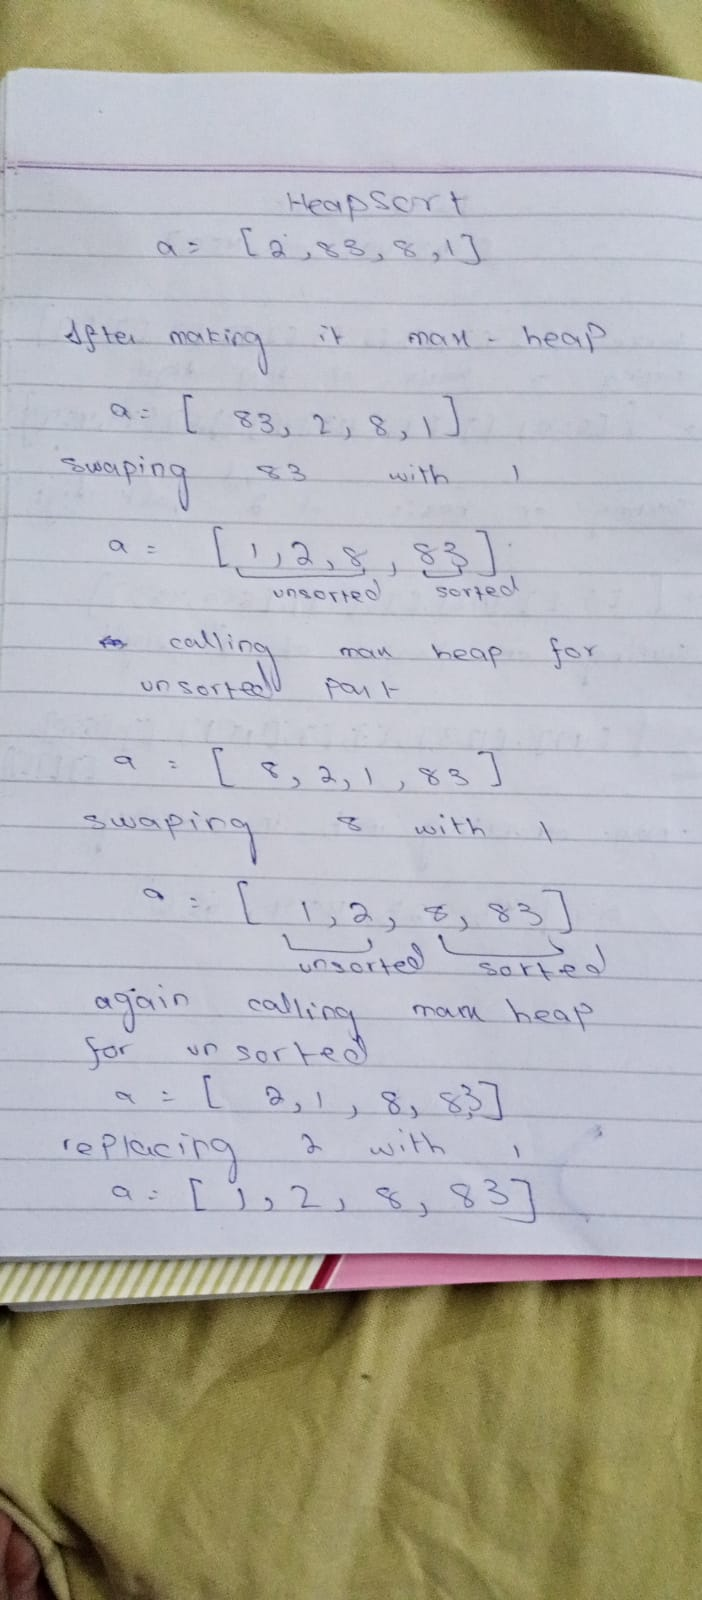 Heapsort
a = [2, 83, 8, 1]
After making it max - heap
a = [ 83, 2, 8, 1]
swaping 83 with 1
a = [1, 2, 8, 83]
unsorted sorted
calling max heap for
unsorted part
a = [ 8, 2, 1, 83]
swaping 8 with 1
a = [ 1, 2, 8, 83]
unsorted sorted
again calling max heap
for unsorted
a = [ 2, 1, 8, 83]
replacing 2 with 1
a = [1, 2, 8, 83]